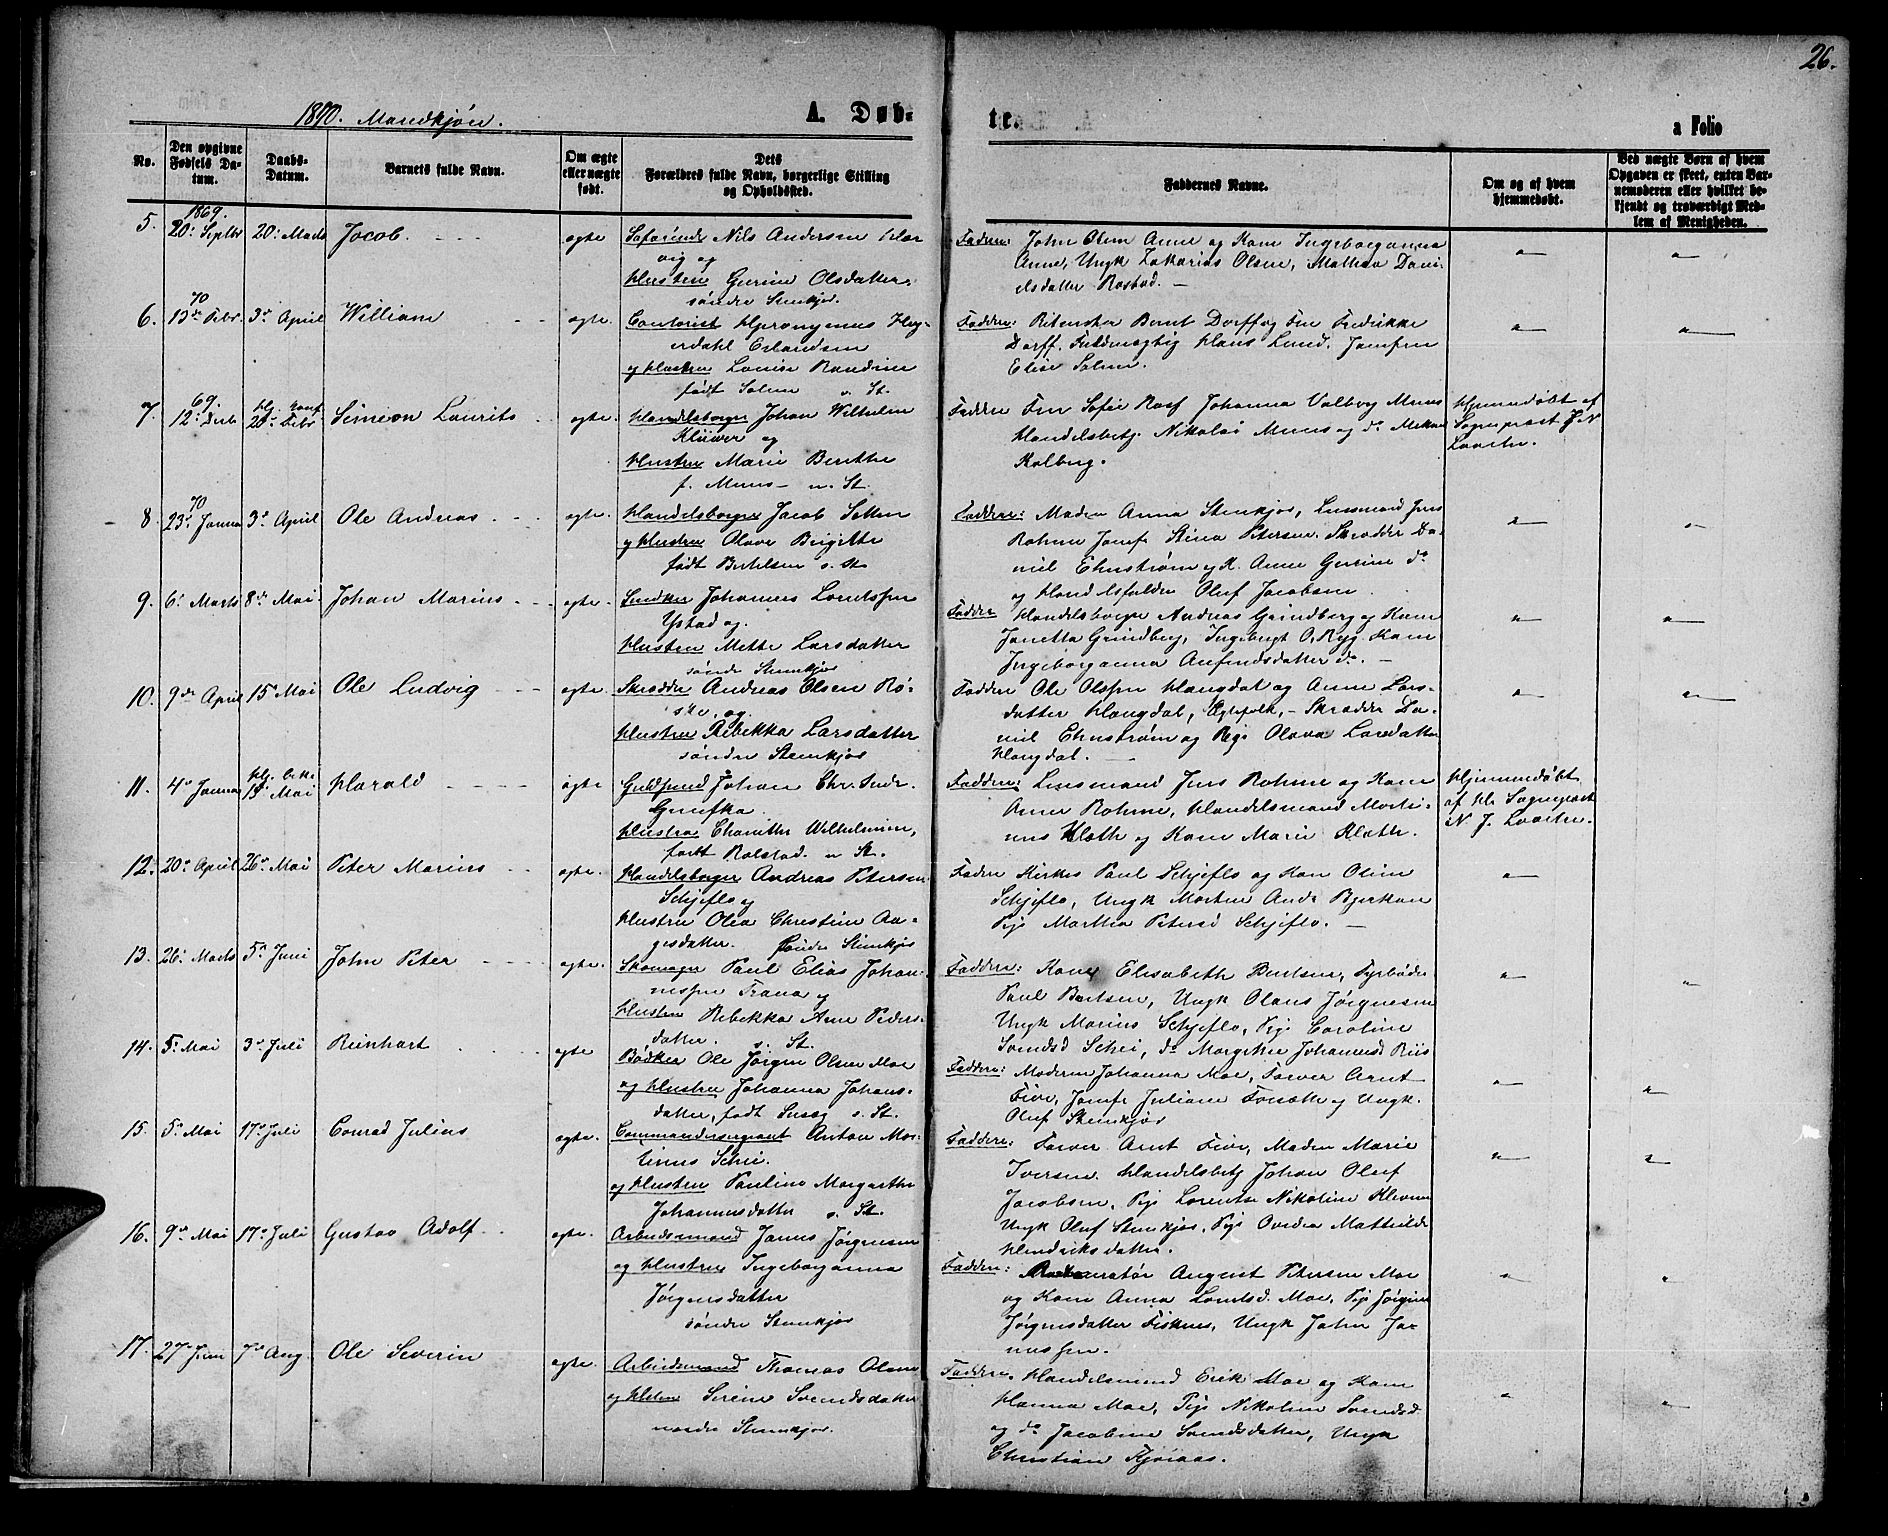 26.
1870. Mandkjøn.
A. Døb-
te.
a Folio
No.
Den opgivne Fødsels Da-
tum.
Daabs-
Datum.
Barnets fulde Navn.
Om ægte
eller uægte
født.
Dets
Forældres fulde Navn, borgerlige Stilling
og Opholdssted.
Faddernes Navne.
Om og af hvem
hjemmedøbt.
Ved uægte Børn af hvem
Opgaven er skeet, enten Bar-
nemoderen eller hvilket be-
kjendt og troværdigt Med-
lem af Menigheden.
1869.
5. 20. Septbr 20. Marts Jacob. ægte Nils Andersen
og
Hustru Gurine Olsdatter,
søndre Stenkjær.
Faddere: John Olsen Anne og Kone Ingeborganna
Anne, Ungk Zakarias Olsen, Mathea Dani-
elsdatter Rostad.
70
6. 13de Febr. 3die April William ægte. Contorist Hieronymus
og Hustru Louise
født Salen s. St.
Faddere: Bernt Dorff og Fru Fredrikke
Dorff, Fuldmægtig Hans Lund, Jomfru
Elise
69.
7. 12. Decb 20. Febr Simeon Laurits ægte. Handelsborger Johan Wilhelm
Klüwer og
Hustru Marie Berithe
f. Muus n. St.
Faddere Fru Johanna Valborg Muus
Handelsbetj. Nikolai Muus og do
Kolberg.
Hjemmedøbt af
Sogneprest
70
8. 23. Janua 3die April Ole Andreas ægte. Handelsborger Jacob Selken
og Hustru Olava Birgitte
født Bertelsen s. St.
Faddere: Madm Anna Stenkjær, Lensmand Jens
Rohme Jomfr Stina Petersen, Skrædder Da-
niel Ehnstrøm og K. Anne Gurine do
og Oluf Jacobsen
9. 6. Marts 8de Mai Johan Marius ægte. Snedker Johannes Lorntssen
Ystad og
Hustru Mette Larsdatter
søndre Stenkjær
Faddere Handelsborger Andreas Grindberg og Kone
Janetta Grindberg, Ingebrigt O. Ryg Kone
Ingeborganna Anfindsdatter do.
10. 9de April 15. Mai Ole Ludvig ægte. Skrædder Andreas Olsen Rø-
ske, og
Hustru Rebekka Larsdatter
søndre Stenkjær
Faddere Ole Olssen Haugdal og Anne Lars-
datter Haugdal, Ægtefolk, Skrædder Da-
niel Ehnstrøm og Pige Olava Larsdatter
Haugdal.
11. 4. Janua 15. Mai Harald ægte Guldsmed Johan Chr. Fredr.
Hustru Wilhelmine,
født Rolstad. n St.
Faddere: Lensmand Jens Rohme og Kone
Anne Rohme, Handelsmand Morti-
nus Klæth og Kone Marie Klæth.
Hjemmedøbt
af Hr. Sogneprest
N. J.
12. 20. April 26. Mai Peter Marius ægte. Handelsborger Andreas Petersen
Schjeflo og
Hustru Olea Christine Aa-
gesdatter. søndre Stenkjær
Faddere Kirkes Paul Schjeflo og Kone Oline
Schjeflo, Ungk Morten Ands
Pige Marthea Petersd Schjeflo.
13. 26. Marts 5te Juni John Peter ægte. Skomager Paul Elias Johan-
nessen Trana og
Hustru Rebekka Anne Peders-
datter. s. St.
Faddere: Kone Elisabeth Bertsen, Fyrbøder
Paul Bertsen, Ungk Olaus Jørgensen
Ungk Marius Schjeflo, Pige Caroline
Svendsd Schei, do Margrethe Johannesd Riis
14. 5. Mai 3. Juli Reinhart ægte Bødker Ole Jørgen Olsen Moe
og Hustru Johanna Johans-
datter, født s. St.
Faddere: Moderen Johanna Moe, Farver Arnt
Five, Jomfr Juliane og Ungk.
Oluf Stenkjær
15. 5. Mai 17. Juli Conrad Julius ægte. Commandersergeant Anton Mar-
tinus Schei.
og Hustru Pauline Margrethe
Johannesdatter s. St.
Faddere: Farver Arnt Five, Madm Marie
Iversen. Handelsbetj Johan Oluf
Jacobsen, Pige Lorentse Nikoline
Ungk Oluf Stenkjær, Pige Ovedia Mathilde
Hendriksdatter.
16. 9de Mai 17. Juli Gustav Adolf ægte. Arbeidsmand Janus Jørgensen
og Hustru Ingeborganna
Jørgensdatter
søndre Stenkjær
Faddere: August Petersen Moe
og Kone Anna Lorntsd. Moe, Pige Jørgine
Jørgensdatter Fisknes, Ungk John Ja-
nussen.
17. 27. Juni 7de Aug. Ole Severin ægte. Arbeidsmand Thomas Olsen
og Hustru Sirene Svendsdatter
nordre Stenkjær.
Faddere. Handelsmand Erik Moe og Kone
Hanna Moe, Pige Nikoline Svendsd
og do Jacobine Svendsdatter, Ungk
Christian